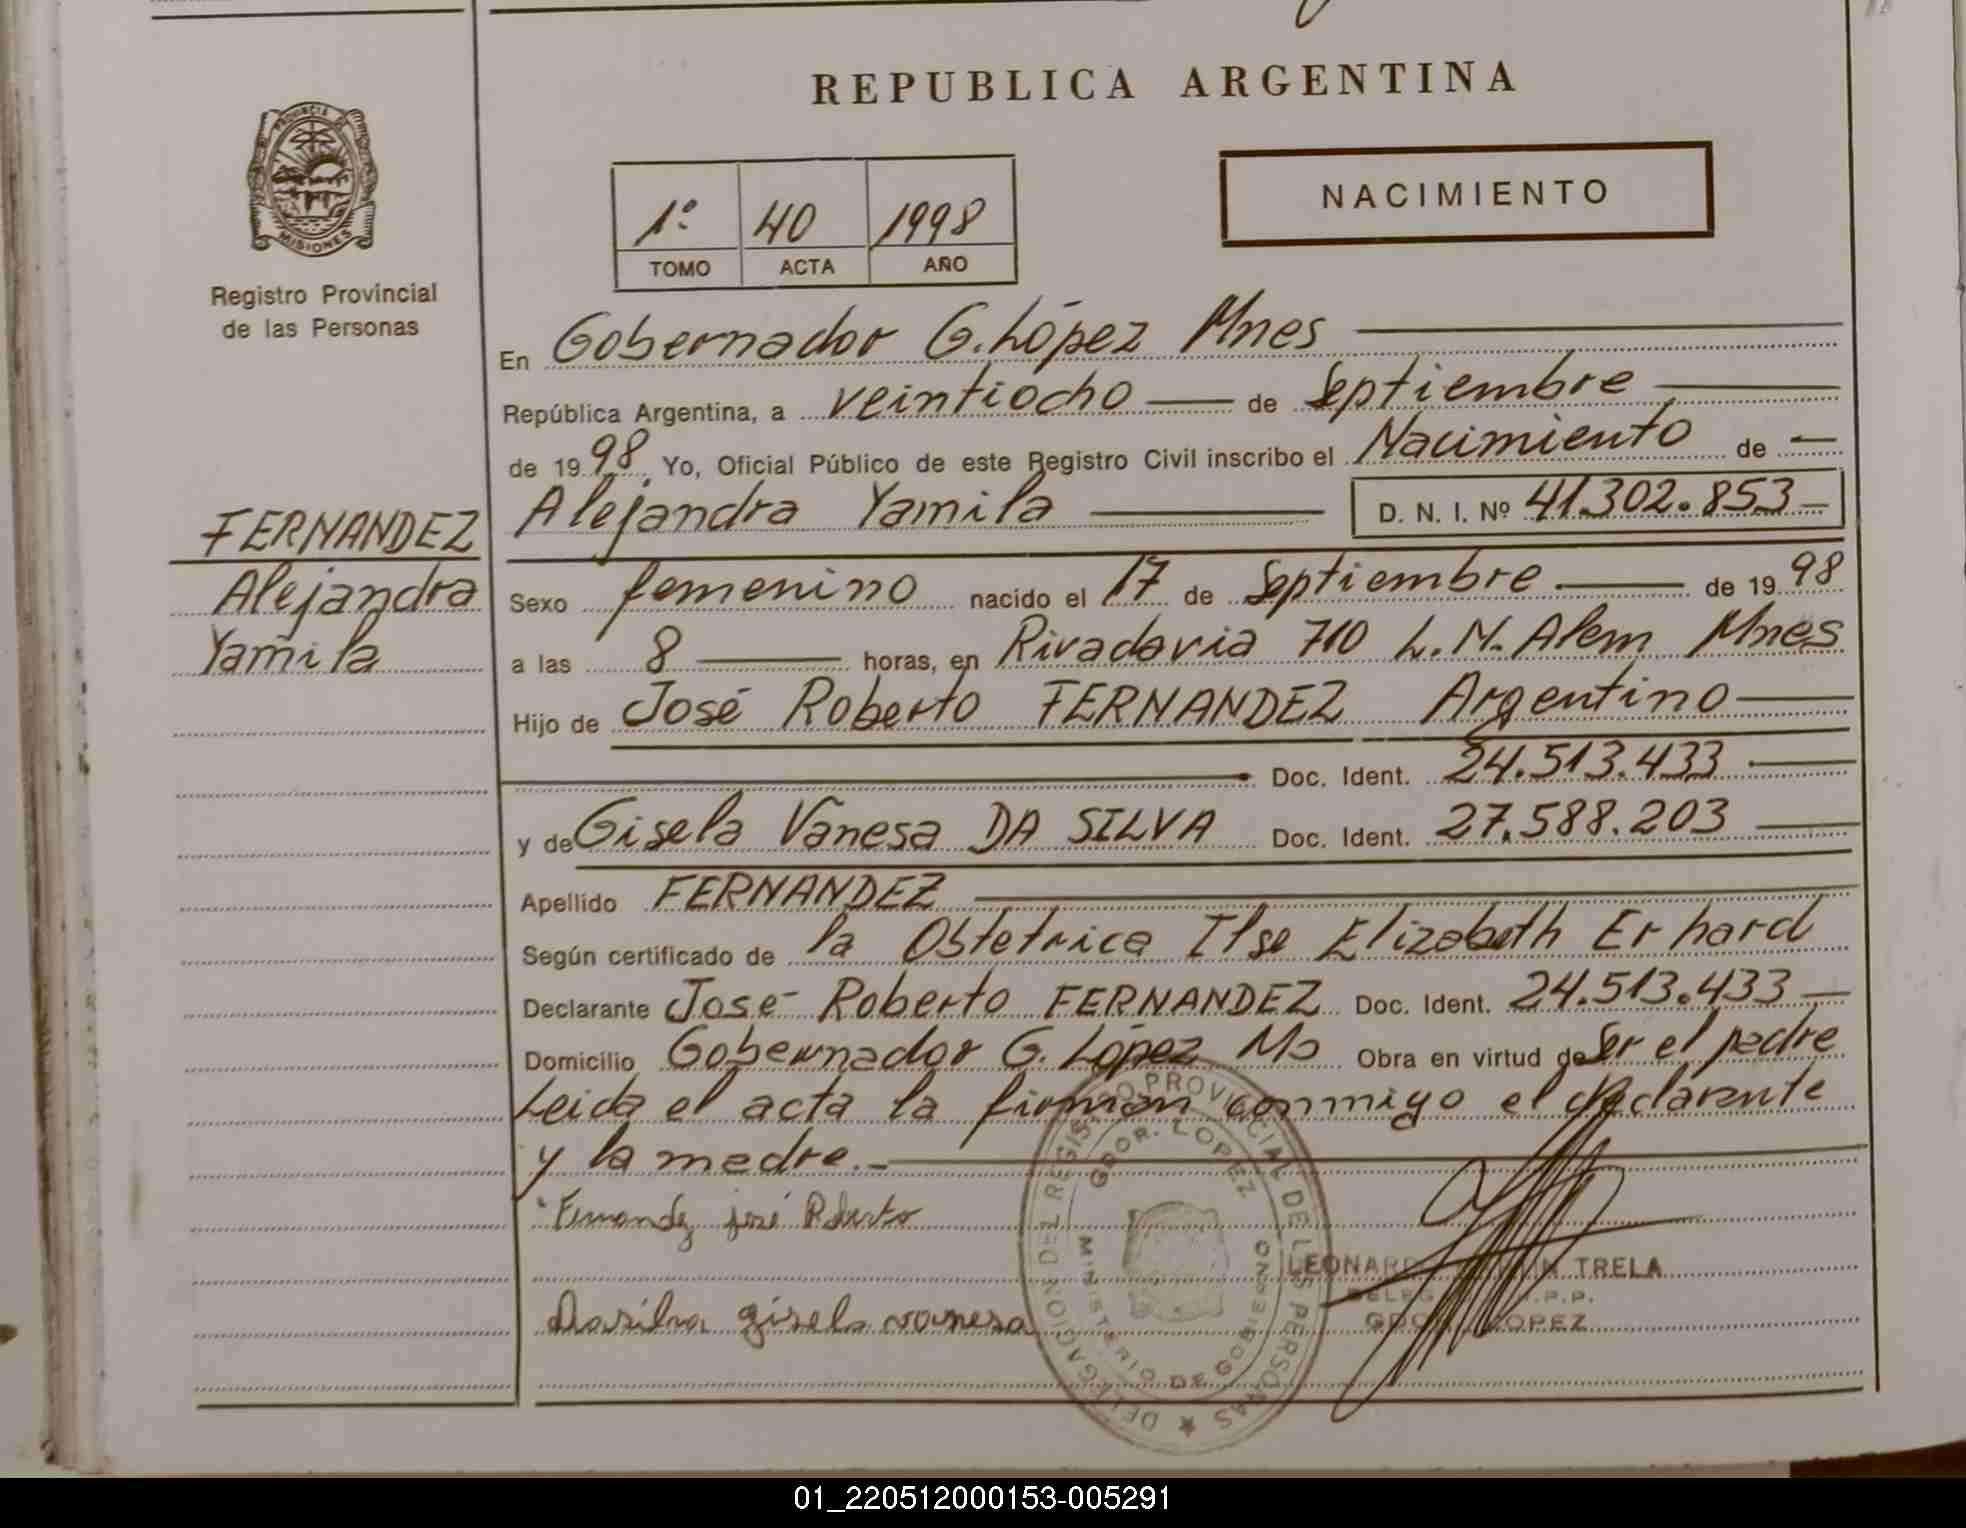 REPUBLICA ARGENTINA
PROVINCIA DE
MISIONES
Registro Provincial
de las Personas
NACIMIENTO
1º 40 1998
TOMO ACTA AÑO
En Gobernador G. López Mnes
República Argentina, a veintiocho de Septiembre
de 1998 Yo, Oficial Público de este Registro Civil inscribo el Nacimiento de
Alejandra Yamila D. N. I. Nº 41.302.853
FERNANDEZ
Alejandra
Yamila
Sexo femenino nacido el 17 de Septiembre de 1998
a las 8 horas, en Rivadavia 710 L. N. Alem Mnes
Hijo de José Roberto FERNANDEZ Argentino
Doc. Ident. 24.513.433
y de Gisela Vanesa DA SILVA Doc. Ident. 27.588.203
Apellido FERNANDEZ
Según certificado de la Obstetrica Ilse Elizabeth Erhard
Declarante José Roberto FERNANDEZ Doc. Ident. 24.513.433
Domicilio Gobernador G. López Mo Obra en virtud de Ser el padre
Leida el acta la firman conmigo el declarante
y la madre.-
Fernandez josé Roberto
Dasilva gisela vanesa
DELEGACION DEL REGISTRO PROVINCIAL DE LAS PERSONAS
GDOR. LOPEZ
MINISTERIO DE GOBIERNO
TRELA
LOPEZ
01_220512000153-005291